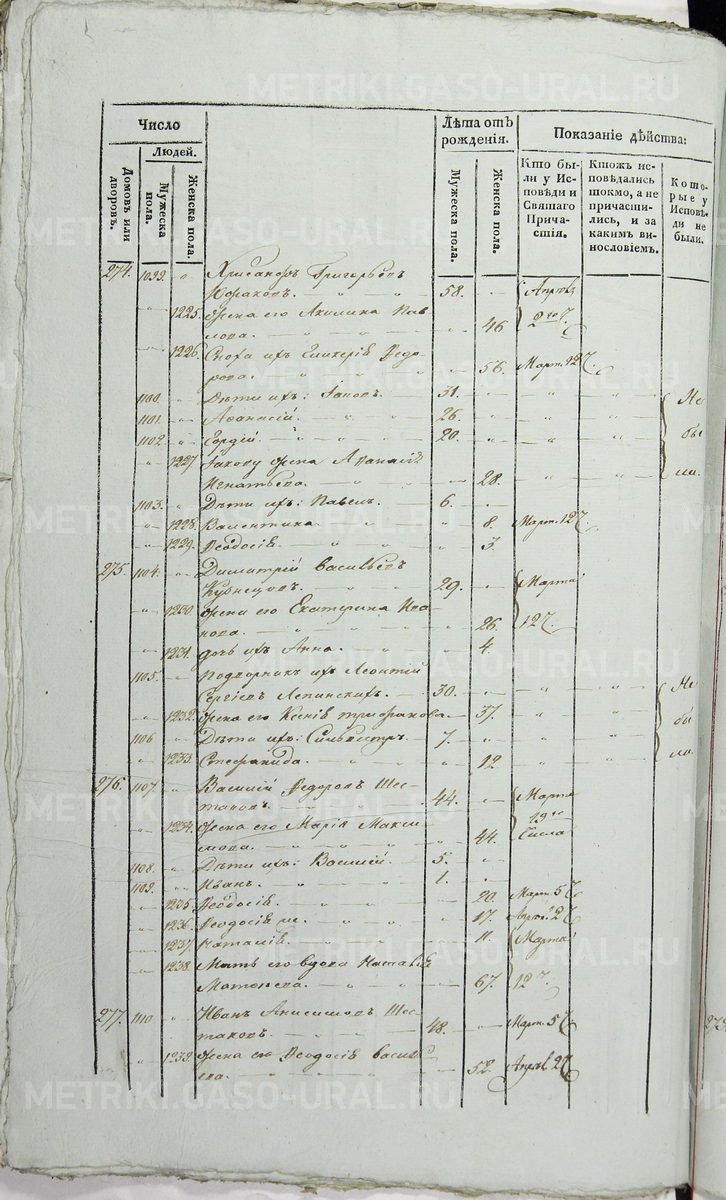 METRIKI.GASO-URAL.RU
Число
Людей.
Домовъ или дворовъ.
Мужеска пола.
Женска пола.
Лѣта отъ рожденія.
Мужеска пола.
Женска пола.
Показаніе дѣйства:
Кто бы-
ли у Ис-
повѣди и
Святаго
Прича-
стія.
Ктожъ ис-
повѣдались
токмо, а не
причасти-
лись, и за
какимъ ви-
нословіемъ.
Кото-
рые у
Исповѣ-
ди не
были.
274. 1099. " Хрисанфъ Григорьевъ
58. Апрѣля
1225. жена его Акилина Пав
лова. 46 2го
1226. Сноха ихъ Гликерія Ѳедо-
рова. 56. Март. 12
1100. Дѣти ихъ: Іаковъ. 31. Не
1101. Аѳанасій. 26.
1102. Гордѣй. 20. бы
1227 Іакову жена
Игнатьева. 28. ли.
1103. Дѣти ихъ: Павелъ. 6.
1228. Валентина. 8. Март. 12
1229. Ѳеодосія. 3.
275. 1104. Димитрій Васильевъ
Кузнецовъ. 29. Марта
1230. жена его Екатерина Ива
нова. 26. 12
1231. дочь ихъ Анна. 4.
1105. Подворникъ ихъ Леонтій
Сергѣевъ Лепинскихъ. 30. Не
1232. жена его Ксенія Трифанова 37. бы
1106 Дѣти ихъ: Сильвестръ. 7.
1233. Стефанида. 12. ли.
276. 1107. Василій Ѳедоровъ Шес-
таковъ. 44. Марта
1234. жена его Марія Макси
мова. 44. числа
1108. Дѣти ихъ: Василій. 5.
1109. Иванъ. 1.
1235 Ѳеодосія. 20. Март. 5
1236. Ѳеодосія же. 17. Апрѣл. 2
1237. Наталія. 11. Марта
1238. Мать его вдова Наталія
67. 12
277. 1110 Иванъ Анисимовъ Шес-
таковъ. 48. Март. 5
1239. жена его Ѳеодосія Василь
ева. 52. Апрѣл. 2